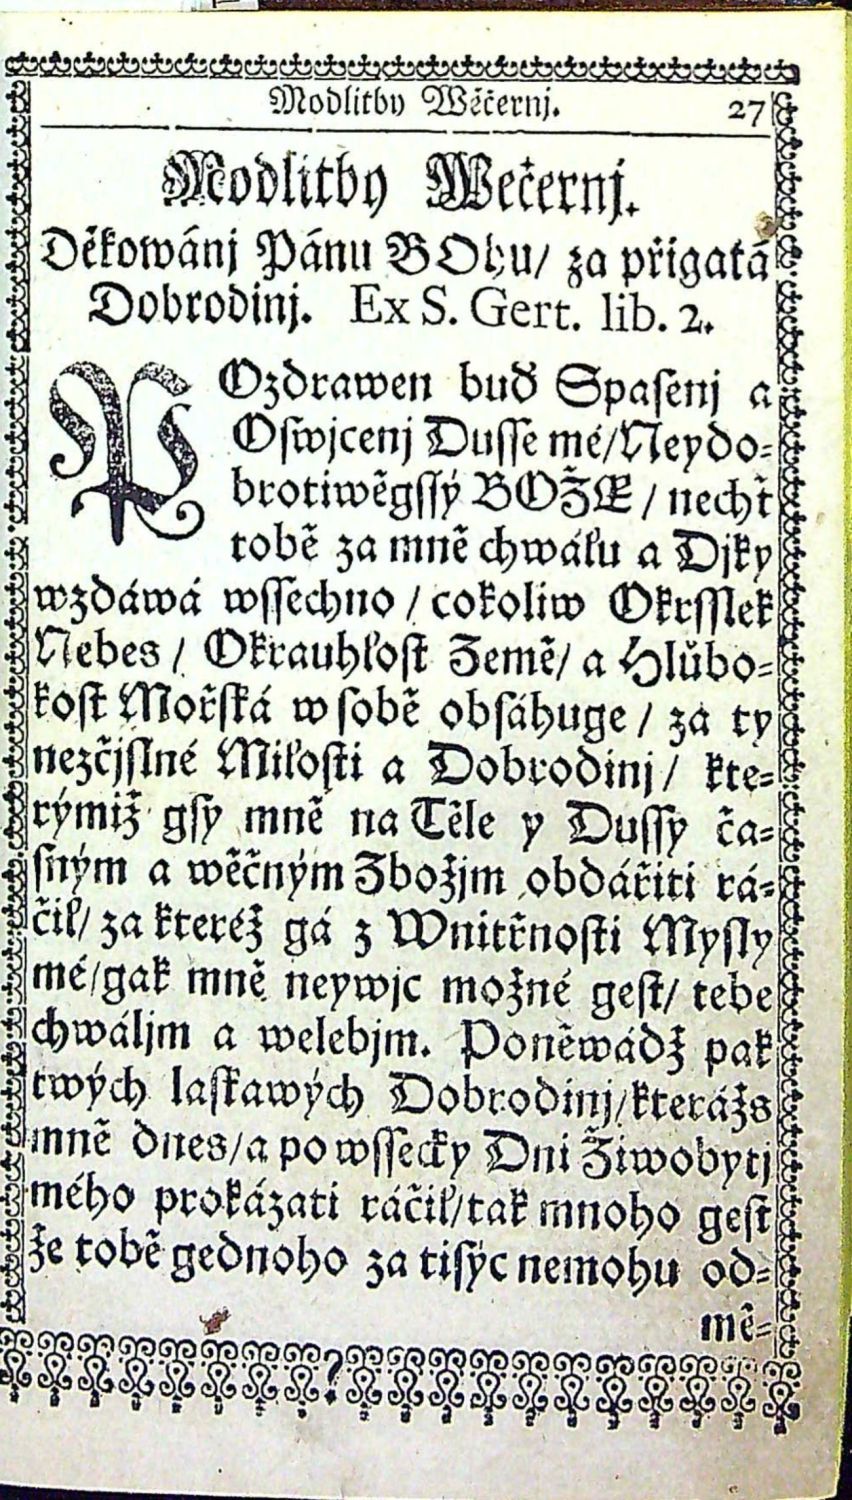 Modlitby Wěčernj. 27
Modlitby Wečernj.
Děkowánj Pánu BOhu/ za přigatá
Dobrodinj. Ex S. Gert. lib. 2.
POzdrawen buď Spasenj a
Oswjcenj Dusse mé/Neydo-
brotiwěgssý BOŽE/ nechť
tobě za mně chwálu a Djky
wzdáwá wssechno/ cokoliw Okrsslek
Nebes/ Okrauhlost Země/ a Hlůbo-
kost Mořská w sobě obsáhuge/ za ty
nezčjslné Milosti a Dobrodinj/ kte-
rýmiž gsy mně na Těle y Dussy ča-
sným a wěčným Zbožjm obdářiti rá-
čil/ za kteréž gá z Wnitřnosti Mysly
mé/gak mně neywjc možné gest/ tebe
chwáljm a welebjm. Poněwádž pak
twých laskawých Dobrodinj/kterážs
mně dnes/a po wssecky Dni Žiwobytj
mého prokázati ráčil/tak mnoho gest
že tobě gednoho za tisýc nemohu od-
mě-